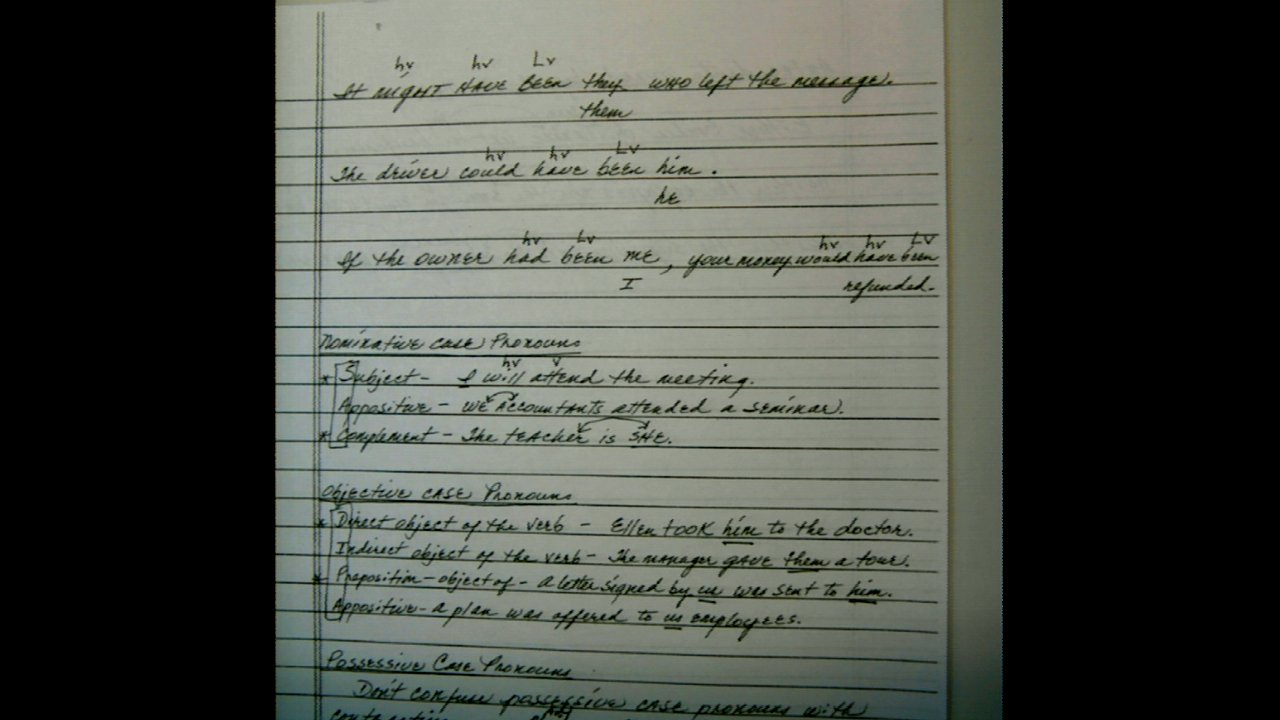 hv hv Lv
It might have been they who left the message.
them
hv hv Lv
The driver could have been him.
he
hv Lv hv hv Lv
If the owner had been me, your money would have been
I refunded.
Nominative Case Pronouns
hv v
* Subject - I will attend the meeting.
Appositive - we accountants attended a seminar.
* Complement - The teacher is SHE.
Objective case Pronouns
* Direct object of the verb - Ellen took him to the doctor.
Indirect object of the verb - The manager gave them a tour.
* Preposition - object of - a letter signed by us was sent to him.
Appositive - a plan was offered to us employees.
Possessive Case Pronouns
Don't confuse possessive case pronouns with